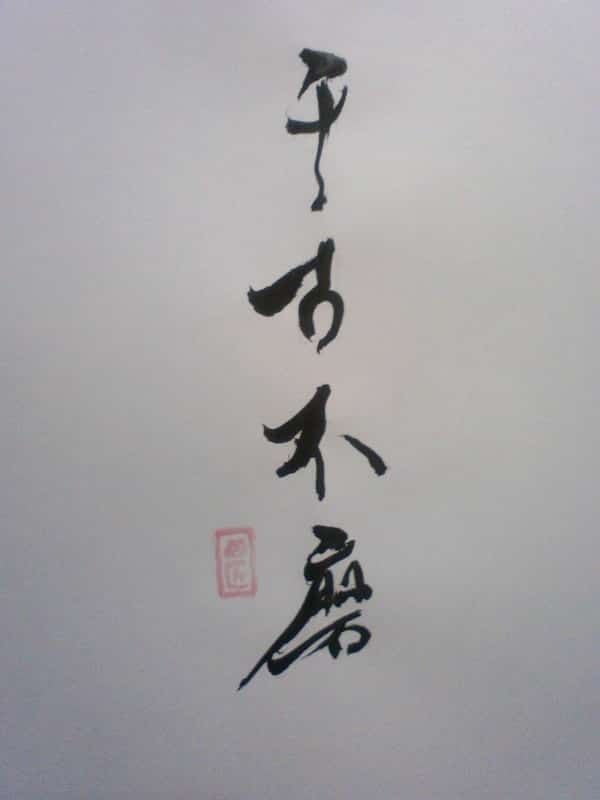 千古不磨